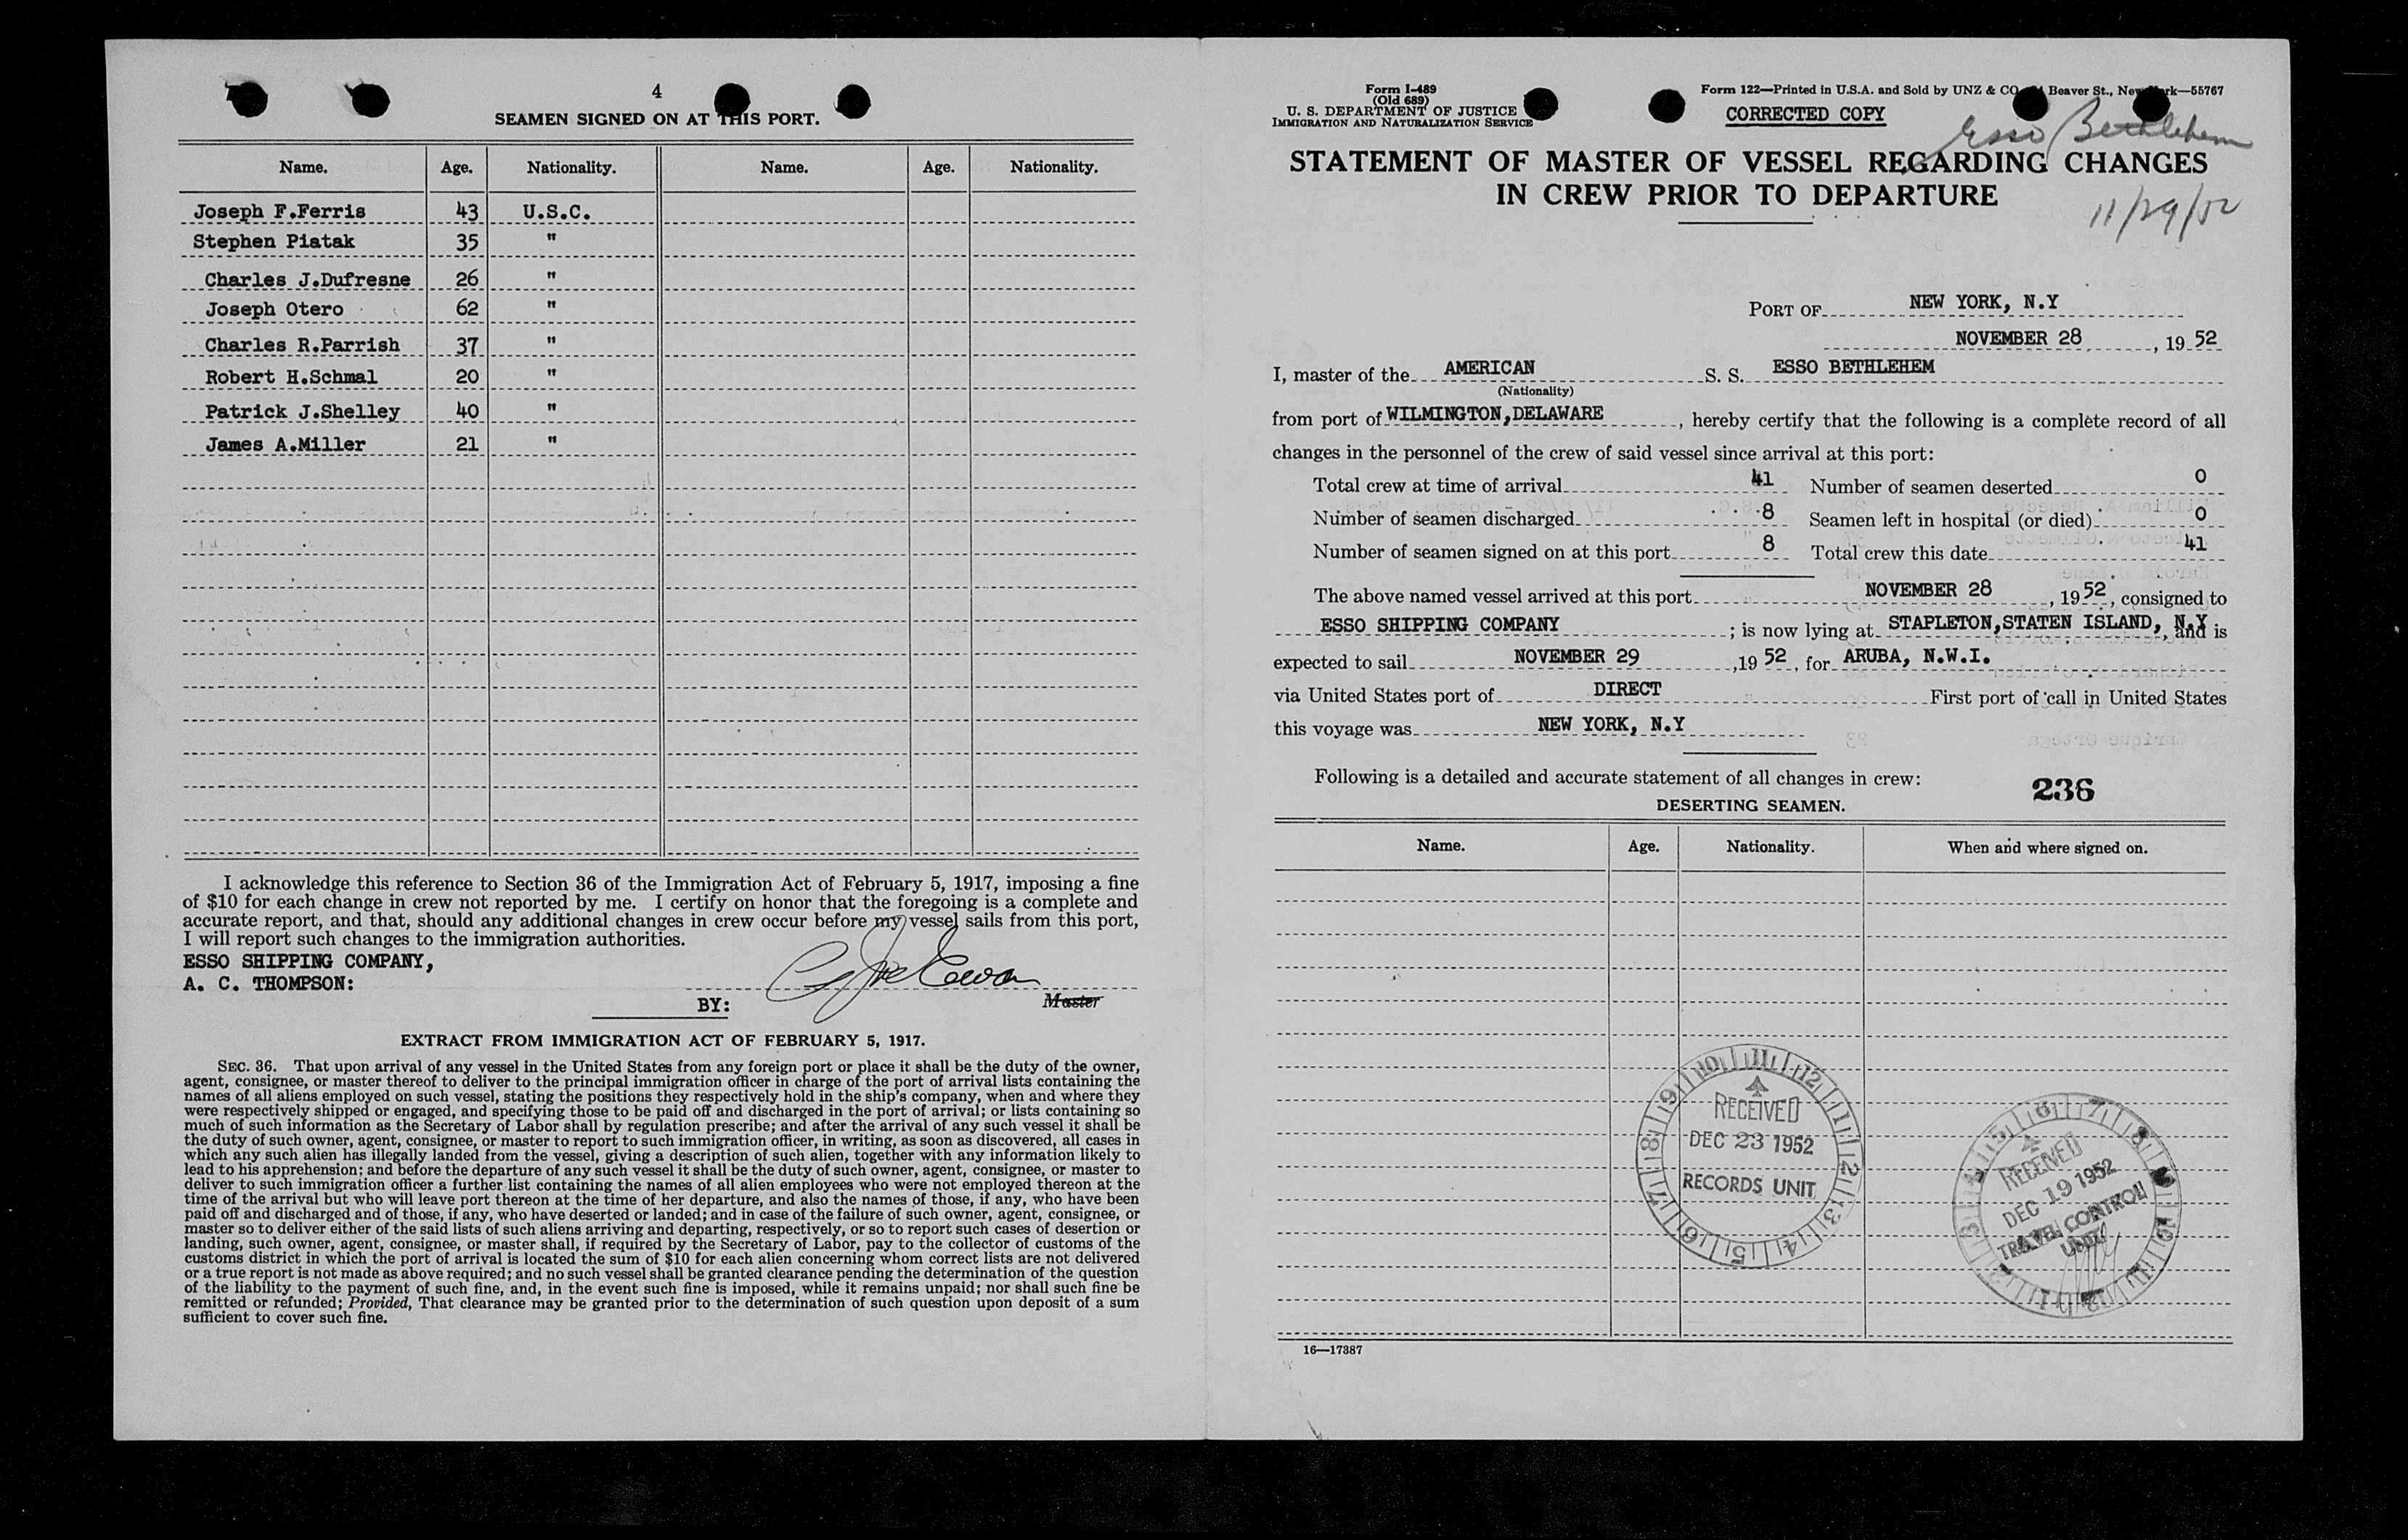 4
SEAMEN SIGNED ON AT THIS PORT.
Name. Age. Nationality. Name. Age. Nationality.
Joseph F.Ferris 43 U.S.C.
Stephen Piatak 35 "
Charles J.Dufresne 26 "
Joseph Otero 62 "
Charles R.Parrish 37 "
Robert H.Schmal 20 "
Patrick J.Shelley 40 "
James A.Miller 21 "
I acknowledge this reference to Section 36 of the Immigration Act of February 5, 1917, imposing a fine
of $10 for each change in crew not reported by me. I certify on honor that the foregoing is a complete and
accurate report, and that, should any additional changes in crew occur before my vessel sails from this port,
I will report such changes to the immigration authorities.
ESSO SHIPPING COMPANY,
A. C. THOMPSON:
BY: Master
EXTRACT FROM IMMIGRATION ACT OF FEBRUARY 5, 1917.
SEC. 36. That upon arrival of any vessel in the United States from any foreign port or place it shall be the duty of the owner,
agent, consignee, or master thereof to deliver to the principal immigration officer in charge of the port of arrival lists containing the
names of all aliens employed on such vessel, stating the positions they respectively hold in the ship's company, when and where they
were respectively shipped or engaged, and specifying those to be paid off and discharged in the port of arrival; or lists containing so
much of such information as the Secretary of Labor shall by regulation prescribe; and after the arrival of any such vessel it shall be
the duty of such owner, agent, consignee, or master to report to such immigration officer, in writing, as soon as discovered, all cases in
which any such alien has illegally landed from the vessel, giving a description of such alien, together with any information likely to
lead to his apprehension; and before the departure of any such vessel it shall be the duty of such owner, agent, consignee, or master to
deliver to such immigration officer a further list containing the names of all alien employees who were not employed thereon at the
time of the arrival but who will leave port thereon at the time of her departure, and also the names of those, if any, who have been
paid off and discharged and of those, if any, who have deserted or landed; and in case of the failure of such owner, agent, consignee, or
master so to deliver either of the said lists of such aliens arriving and departing, respectively, or so to report such cases of desertion or
landing, such owner, agent, consignee, or master shall, if required by the Secretary of Labor, pay to the collector of customs of the
customs district in which the port of arrival is located the sum of $10 for each alien concerning whom correct lists are not delivered
or a true report is not made as above required; and no such vessel shall be granted clearance pending the determination of the question
of the liability to the payment of such fine, and, in the event such fine is imposed, while it remains unpaid; nor shall such fine be
remitted or refunded; Provided, That clearance may be granted prior to the determination of such question upon deposit of a sum
sufficient to cover such fine.
Form I-489
(Old 689)
U. S. DEPARTMENT OF JUSTICE
IMMIGRATION AND NATURALIZATION SERVICE
Form 122—Printed in U.S.A. and Sold by UNZ & CO Beaver St., New York—55767
CORRECTED COPY
Esso Bethlehem
STATEMENT OF MASTER OF VESSEL REGARDING CHANGES
IN CREW PRIOR TO DEPARTURE
11/29/52
PORT OF NEW YORK, N.Y
NOVEMBER 28, 19 52
I, master of the AMERICAN S. S. ESSO BETHLEHEM
(Nationality)
from port of WILMINGTON,DELAWARE, hereby certify that the following is a complete record of all
changes in the personnel of the crew of said vessel since arrival at this port:
Total crew at time of arrival 41 Number of seamen deserted 0
Number of seamen discharged 8 Seamen left in hospital (or died) 0
Number of seamen signed on at this port 8 Total crew this date 41
The above named vessel arrived at this port NOVEMBER 28, 19 52, consigned to
ESSO SHIPPING COMPANY; is now lying at STAPLETON,STATEN ISLAND, N.Y, and is
expected to sail NOVEMBER 29, 19 52, for ARUBA, N.W.I.
via United States port of DIRECT First port of call in United States
this voyage was NEW YORK, N.Y
Following is a detailed and accurate statement of all changes in crew:
236
DESERTING SEAMEN.
Name. Age. Nationality. When and where signed on.
RECEIVED
DEC 23 1952
RECORDS UNIT
RECEIVED
DEC 19 1952
TRAVEL CONTROL
UNIT
16—17387